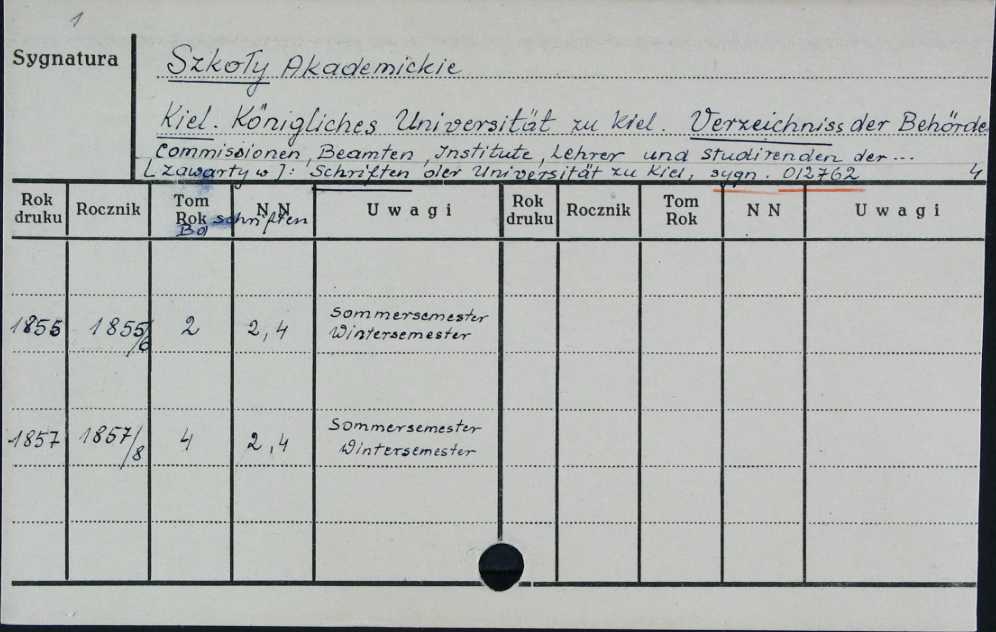 1
Sygnatura
Szkoły Akademickie
Kiel. Königliches Universität zu Kiel. Verzeichniss der Behörde
Commissionen, Beamten, Institute, Lehrer und Studirenden der ...
[zawarty w]: Schriften der Universität zu Kiel, sygn. 012762 4
Rok druku Rocznik Tom Rok Bd schriften N N Uwagi Rok druku Rocznik Tom Rok N N Uwagi
1855 1855/6 2 2,4 Sommersemester
Wintersemester
1857 1857/8 4 2,4 Sommersemester
Wintersemester